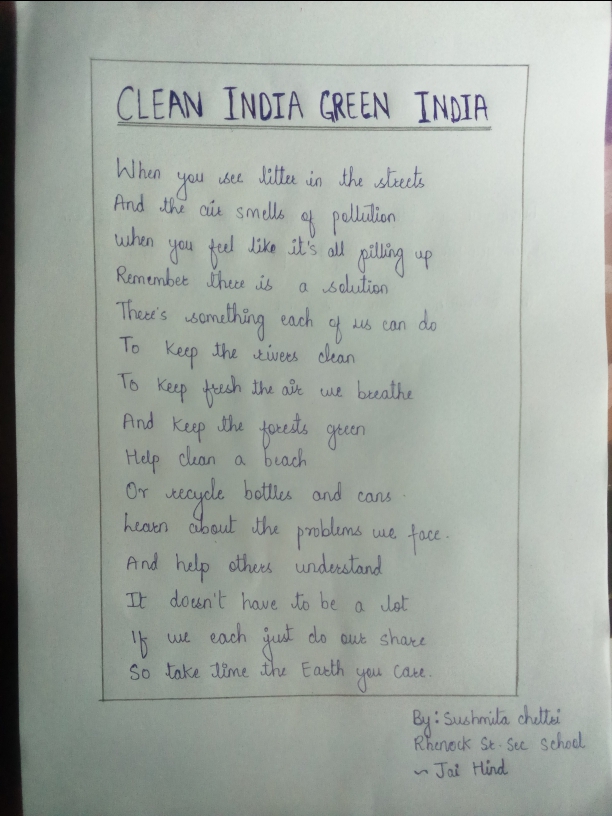 CLEAN INDIA GREEN INDIA
When you see litter in the streets
And the air smells of pollution
when you feel like it's all pilling up
Remember there is a solution
There's something each of us can do
To keep the rivers clean
To keep fresh the air we breathe
And keep the forests green
Help clean a beach
Or recycle bottles and cans.
Learn about the problems we face.
And help others understand
It doesn't have to be a lot
If we each just do our share
So take time the Earth you care.
By: Sushmita chettri
Rhenock Sr. Sec School
~ Jai Hind